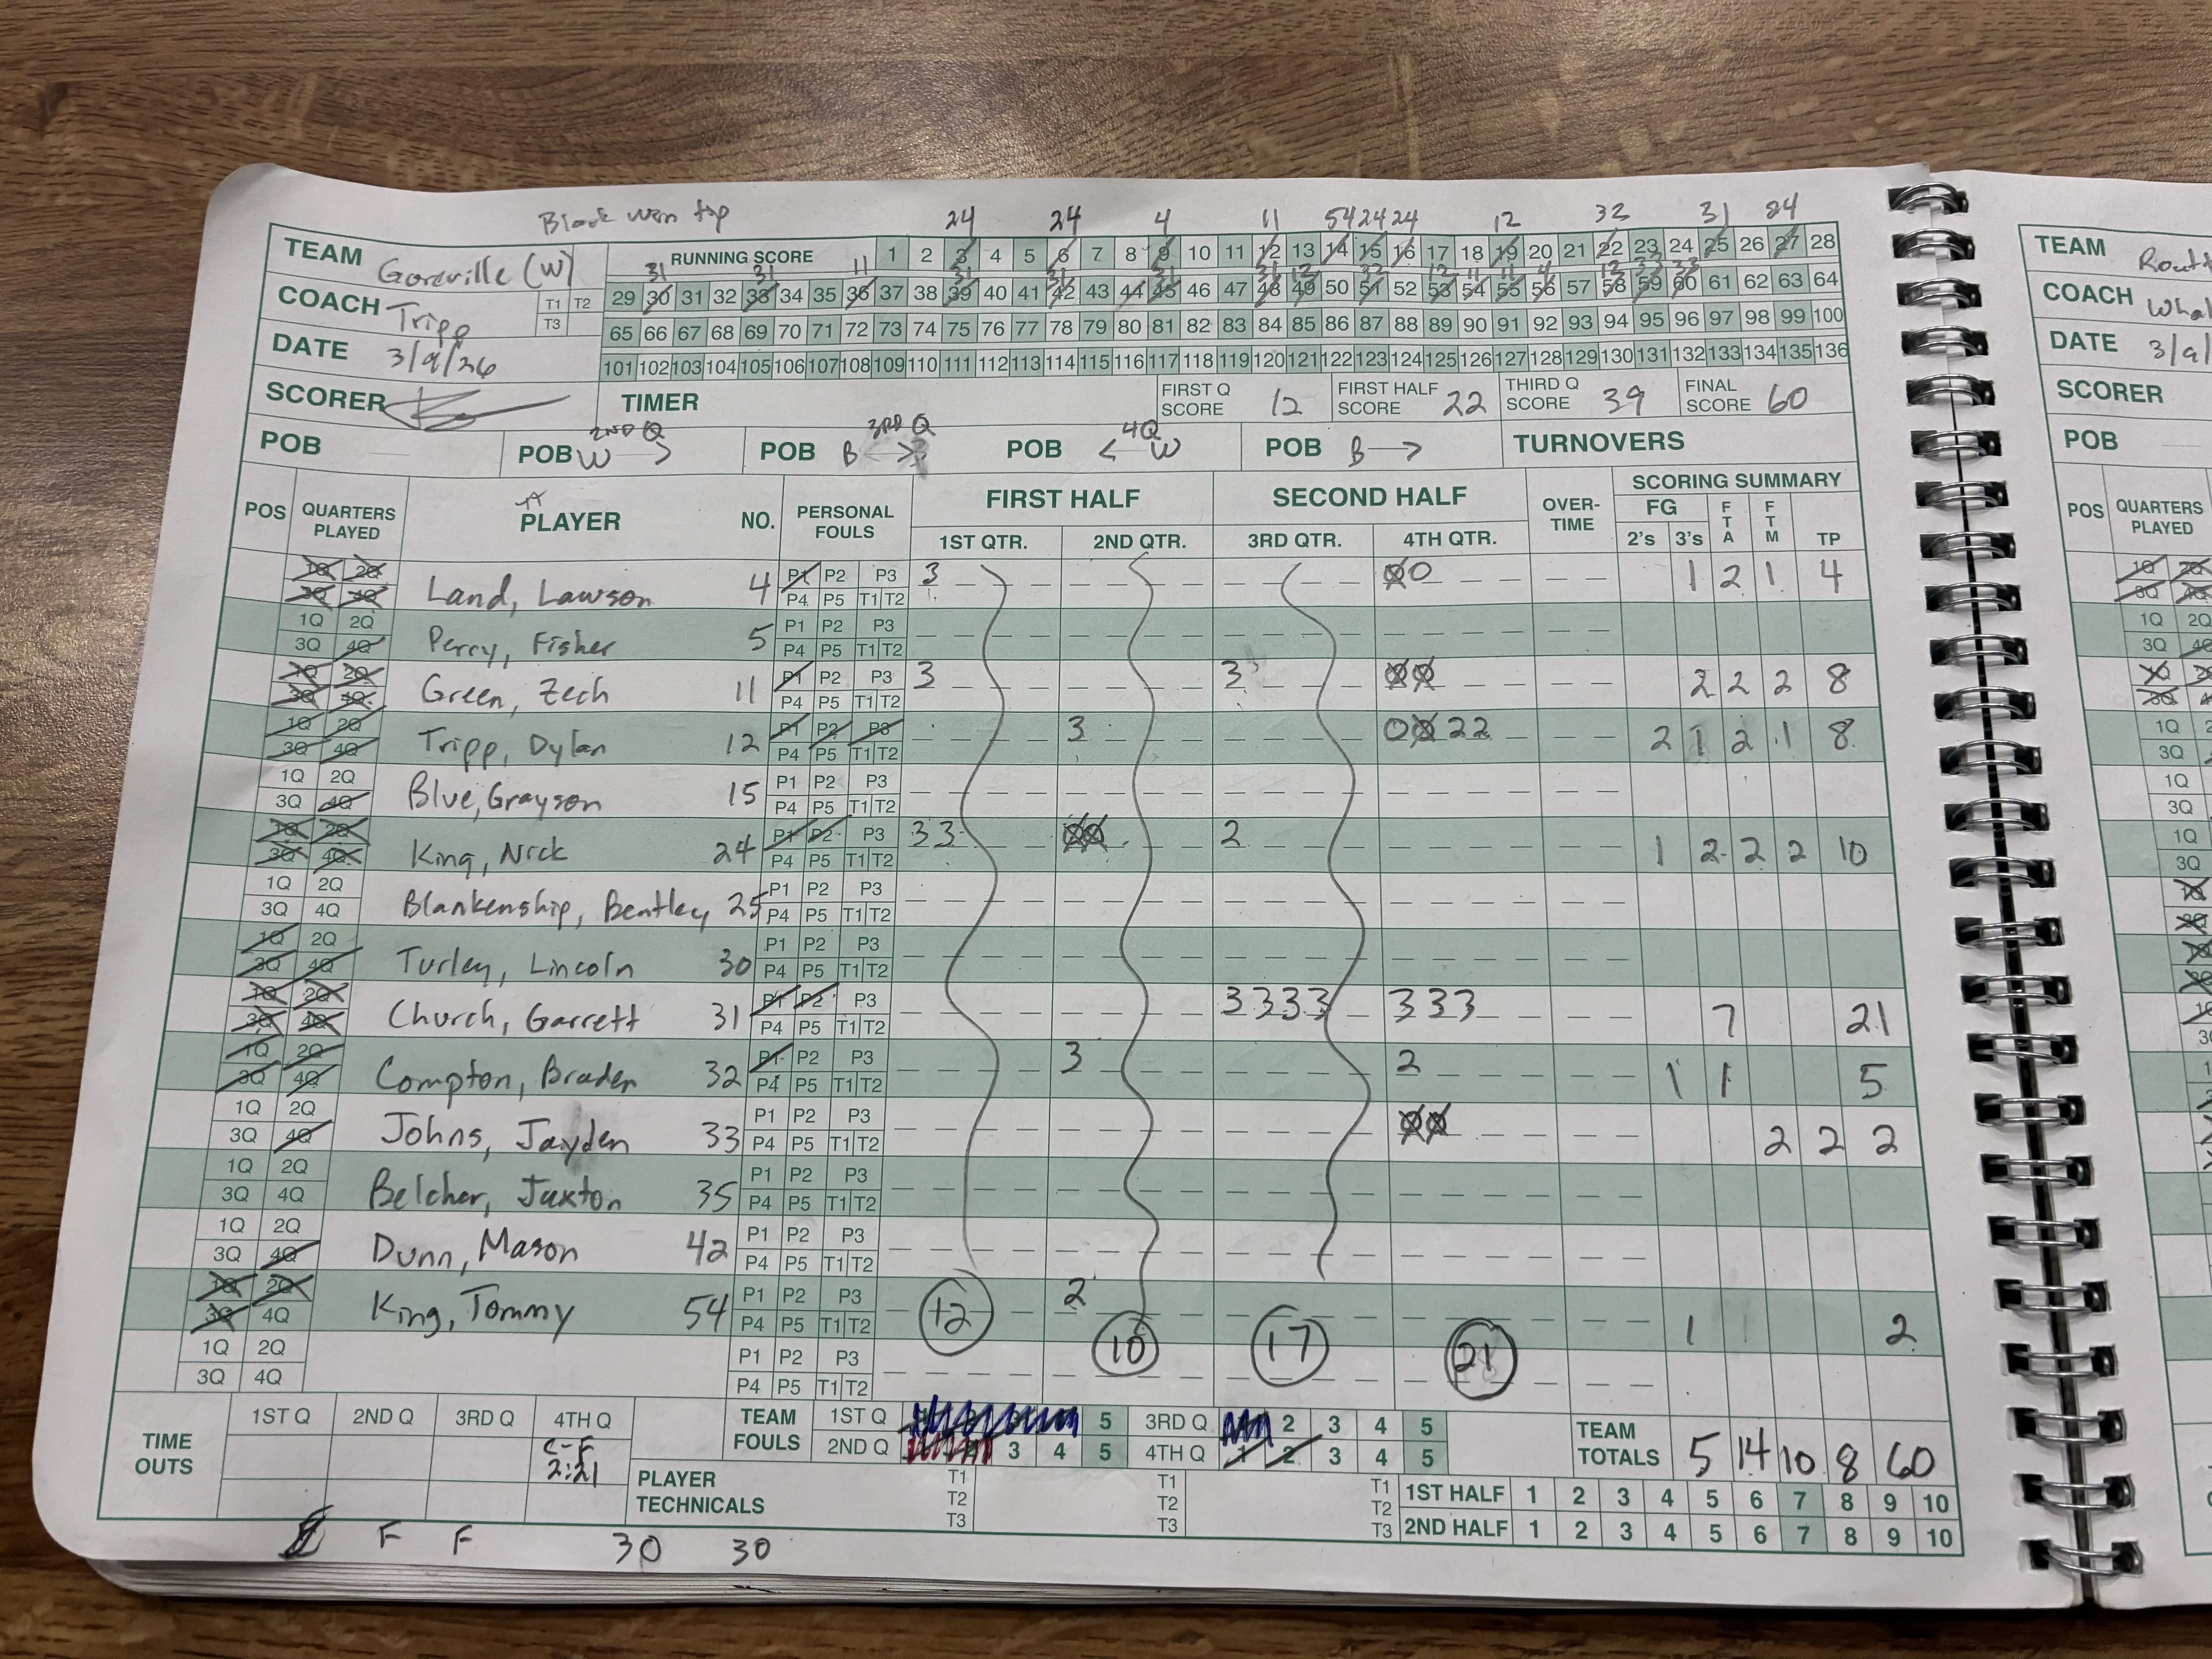 Black won tip
24 24 4 11 54 24 24 12 32 31 24
TEAM Goreville (W)
RUNNING SCORE 1 2 3 4 5 6 7 8 9 10 11 12 13 14 15 16 17 18 19 20 21 22 23 24 25 26 27 28
31 31 11 31 31 31 31 12 32 12 11 11 4 12 33 33
COACH Tripp T1 T2 T3
29 30 31 32 33 34 35 36 37 38 39 40 41 42 43 44 45 46 47 48 49 50 51 52 53 54 55 56 57 58 59 60 61 62 63 64
65 66 67 68 69 70 71 72 73 74 75 76 77 78 79 80 81 82 83 84 85 86 87 88 89 90 91 92 93 94 95 96 97 98 99 100
DATE 3/9/26
101 102 103 104 105 106 107 108 109 110 111 112 113 114 115 116 117 118 119 120 121 122 123 124 125 126 127 128 129 130 131 132 133 134 135 136
SCORER TIMER FIRST Q SCORE 12 FIRST HALF SCORE 22 THIRD Q SCORE 39 FINAL SCORE 60
POB POB 2ND Q W → POB 3RD Q B POB 4Q ← W POB B → TURNOVERS
POS QUARTERS PLAYED PLAYER NO. PERSONAL FOULS FIRST HALF SECOND HALF OVER-TIME SCORING SUMMARY
1ST QTR. 2ND QTR. 3RD QTR. 4TH QTR. FG 2's 3's FTA FTM TP
1Q 2Q 3Q 4Q Land, Lawson 4 P1 P2 P3 P4 P5 T1 T2 3 0 0 1 2 1 4
1Q 2Q 3Q 4Q Perry, Fisher 5 P1 P2 P3 P4 P5 T1 T2
1Q 2Q 3Q 4Q Green, Zech 11 P1 P2 P3 P4 P5 T1 T2 3 3 0 0 2 2 2 8
1Q 2Q 3Q 4Q Tripp, Dylan 12 P1 P2 P3 P4 P5 T1 T2 3 0 0 2 2 2 1 2 1 8
1Q 2Q 3Q 4Q Blue, Grayson 15 P1 P2 P3 P4 P5 T1 T2
1Q 2Q 3Q 4Q King, Nick 24 P1 P2 P3 P4 P5 T1 T2 3 3 0 0 2 1 2 2 2 10
1Q 2Q 3Q 4Q Blankenship, Bentley 25 P1 P2 P3 P4 P5 T1 T2
1Q 2Q 3Q 4Q Turley, Lincoln 30 P1 P2 P3 P4 P5 T1 T2
1Q 2Q 3Q 4Q Church, Garrett 31 P1 P2 P3 P4 P5 T1 T2 3 3 3 3 3 3 3 7 21
1Q 2Q 3Q 4Q Compton, Braden 32 P1 P2 P3 P4 P5 T1 T2 3 2 1 1 5
1Q 2Q 3Q 4Q Johns, Jayden 33 P1 P2 P3 P4 P5 T1 T2 0 0 2 2 2
1Q 2Q 3Q 4Q Belcher, Jaxton 35 P1 P2 P3 P4 P5 T1 T2
1Q 2Q 3Q 4Q Dunn, Mason 42 P1 P2 P3 P4 P5 T1 T2
1Q 2Q 3Q 4Q King, Tommy 54 P1 P2 P3 P4 P5 T1 T2 2 1 2
1Q 2Q 3Q 4Q P1 P2 P3 P4 P5 T1 T2
12 10 17 21
TIME OUTS 1ST Q 2ND Q 3RD Q 4TH Q
C-F
2:21
TEAM FOULS 1ST Q 5 3RD Q 2 3 4 5
2ND Q 3 4 5 4TH Q 1 2 3 4 5
TEAM TOTALS 5 14 10 8 60
PLAYER TECHNICALS T1 T2 T3 T1 T2 T3 T1 T2 T3
1ST HALF 1 2 3 4 5 6 7 8 9 10
2ND HALF 1 2 3 4 5 6 7 8 9 10
F F 30 30
TEAM
COACH
DATE 3/9/
SCORER
POB
POS QUARTERS PLAYED